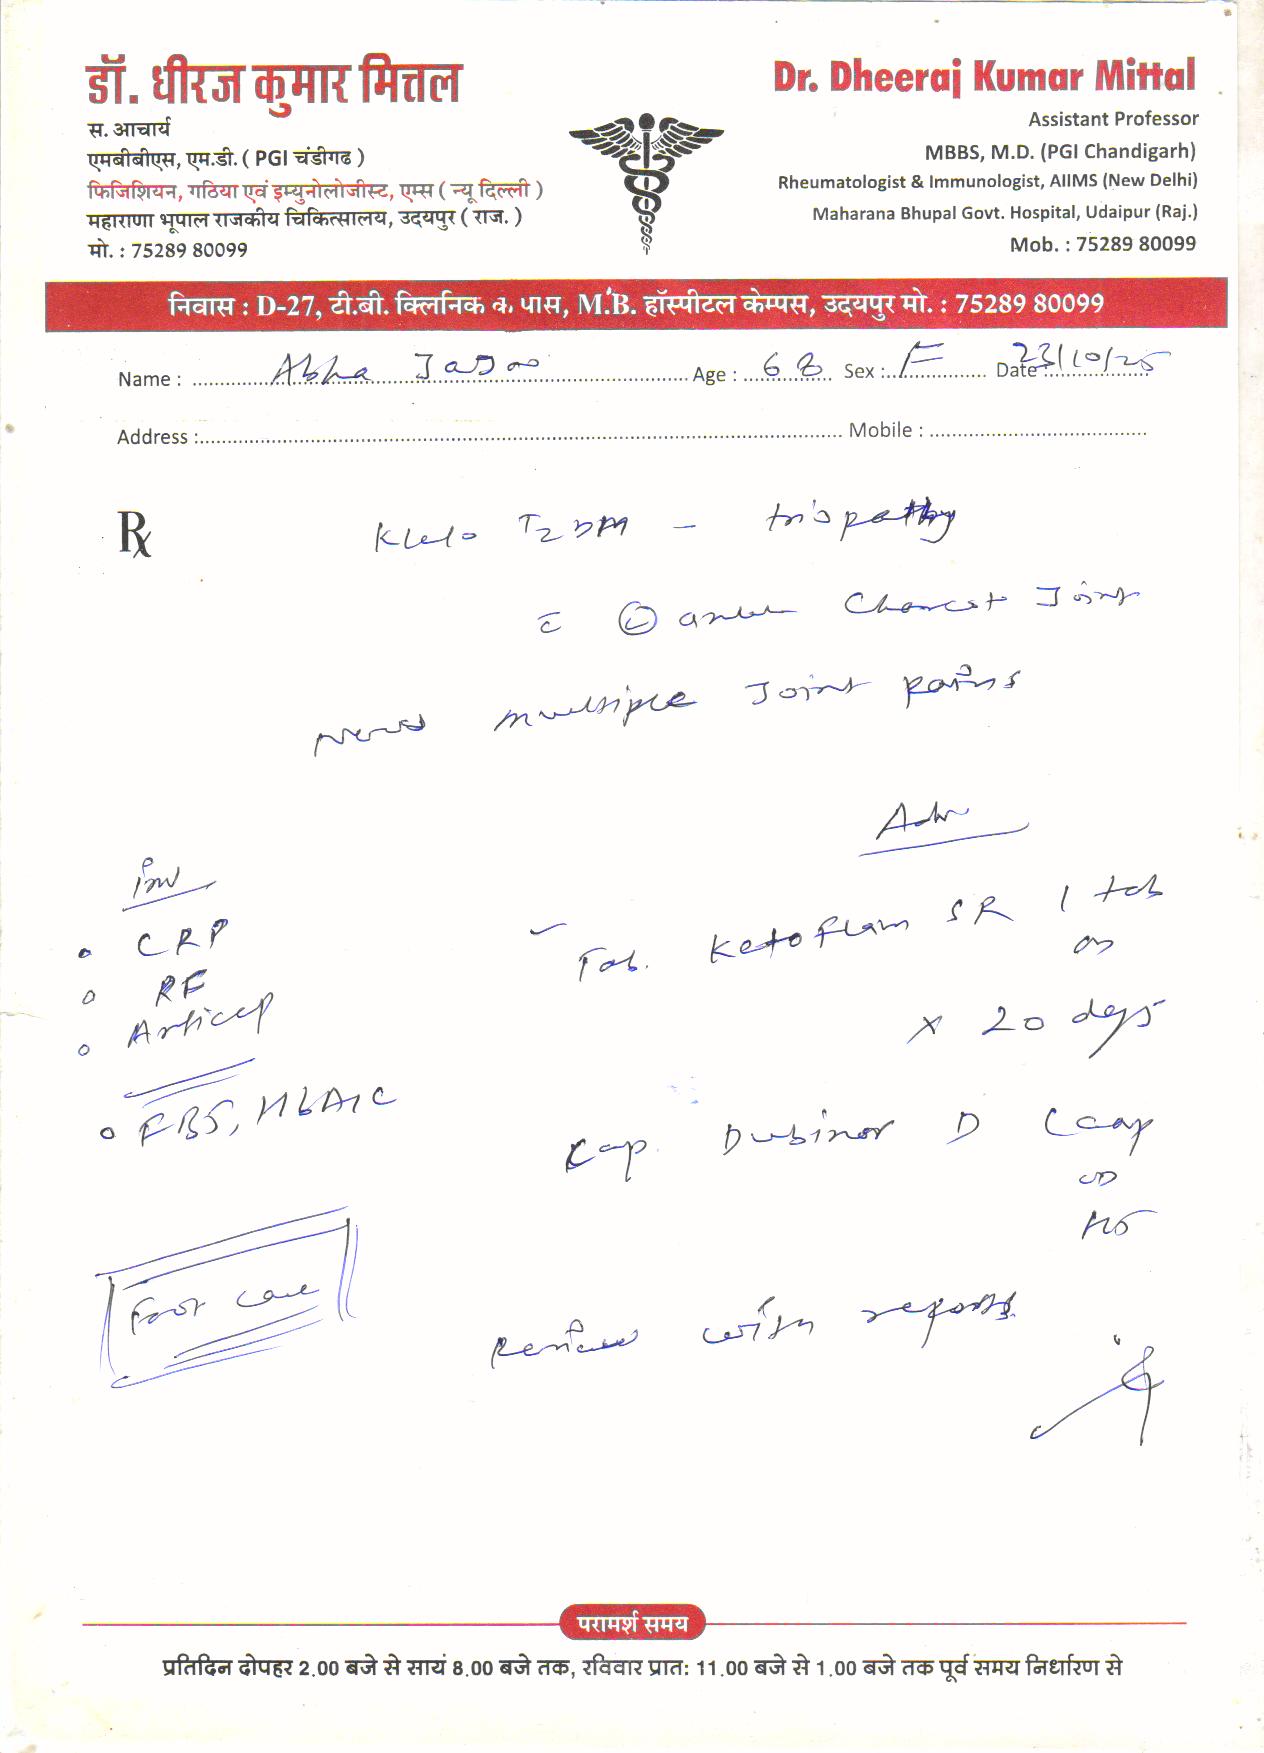 डॉ. धीरज कुमार मित्तल
स. आचार्य
एमबीबीएस, एम.डी. ( PGI चंडीगढ )
फिजिशियन, गठिया एवं इम्युनोलोजीस्ट, एम्स ( न्यू दिल्ली )
महाराणा भूपाल राजकीय चिकित्सालय, उदयपुर ( राज. )
मो. : 75289 80099
Dr. Dheeraj Kumar Mittal
Assistant Professor
MBBS, M.D. (PGI Chandigarh)
Rheumatologist & Immunologist, AIIMS (New Delhi)
Maharana Bhupal Govt. Hospital, Udaipur (Raj.)
Mob. : 75289 80099
निवास : D-27, टी.बी. क्लिनिक के पास, M.B. हॉस्पीटल केम्पस, उदयपुर मो. : 75289 80099
Name : Abha Age : 68 Sex : F Date : 23/10/25
Address : Mobile :
Rx
K/c/o T2DM -
c (L) ankle Charcot Joint
Now multiple Joint pains
Adv
Inv
• CRP
• RF
• Anti ccp
• FBS, HbA1C
Tab. Ketoflam SR 1 tab
OD
x 20 days
Cap. Dubinor D 1 cap
OD
HS
Foot care
Review with reports
परामर्श समय
प्रतिदिन दोपहर 2.00 बजे से सायं 8.00 बजे तक, रविवार प्रात: 11.00 बजे से 1.00 बजे तक पूर्व समय निर्धारण से